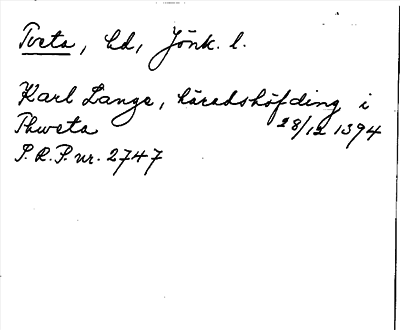 Tveta, hd, Jönk. l.
Karl Lange, häradshöfding i
Thweta 28/12 1394
S.R.P. nr. 2747